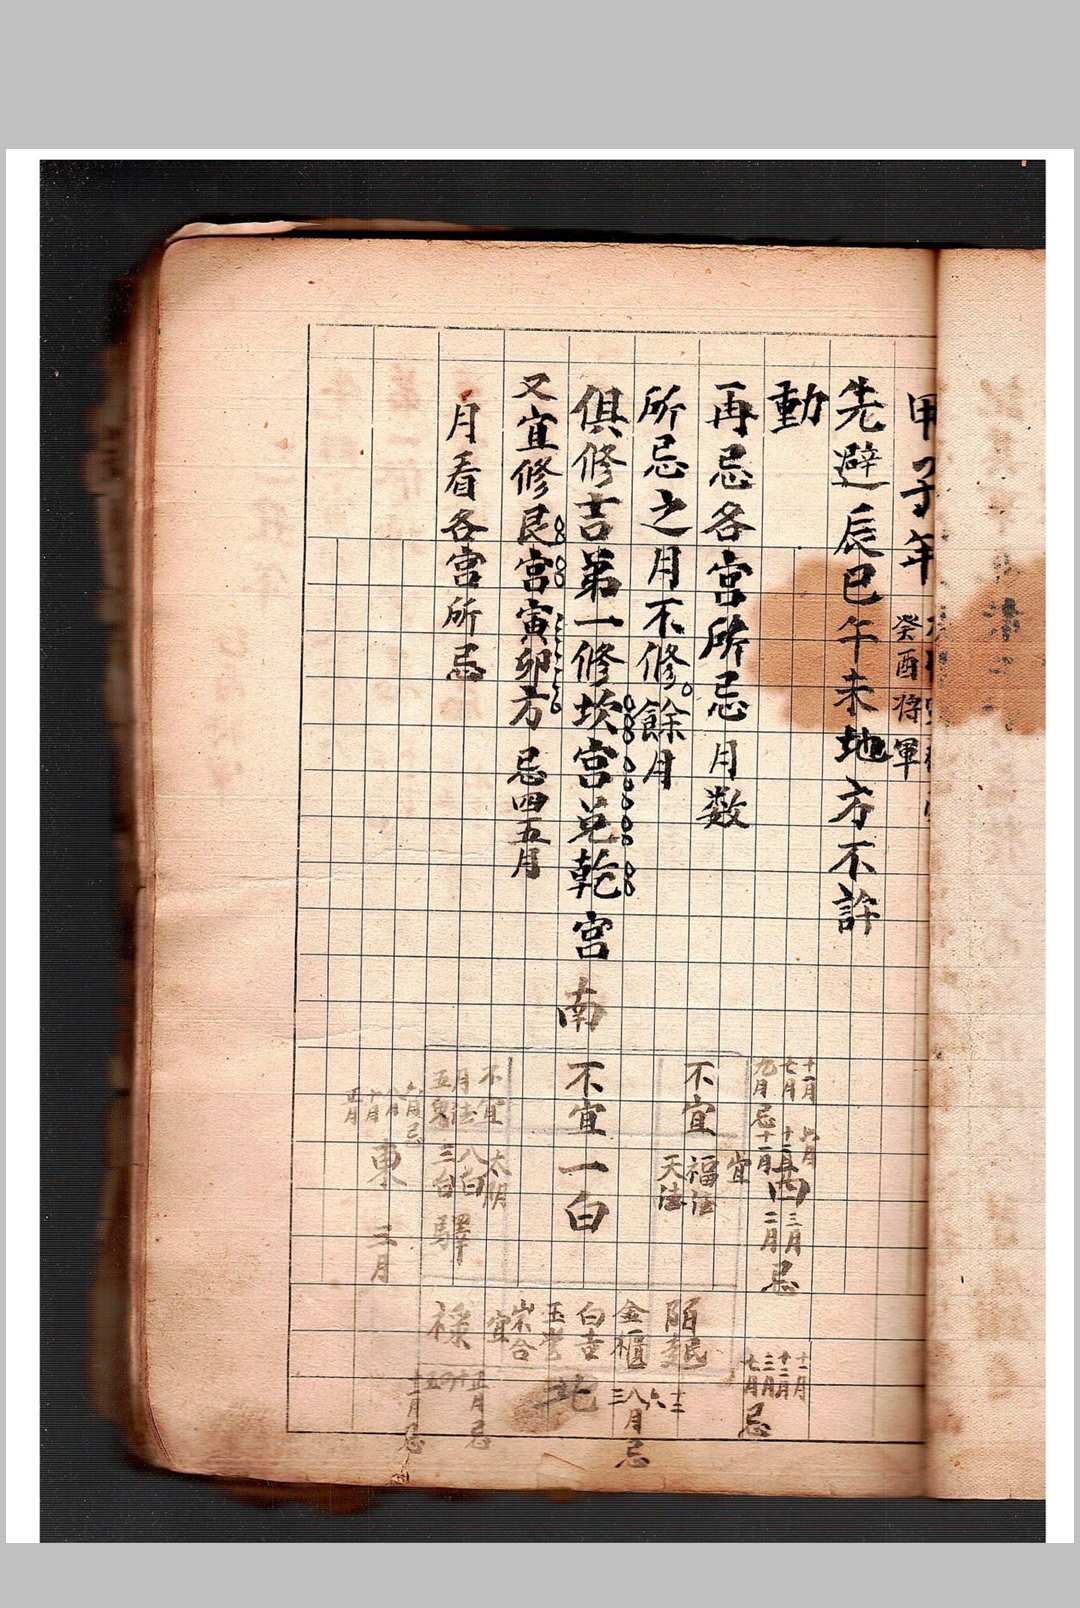 甲子年
癸酉将軍
先避辰巳午未地方不許
動
再忌各宮所忌月数
所忌之月不修。餘月
俱修吉第一修坎宮兌乾宮
又宜修艮宮寅卯方 忌四五月
月看各宮所忌
南
十一月
七月
九月忌
六月
十二月
十一月
西
三月
二月
忌
不宜
宜
福
天法
不宜一白
不宜
月法
五鬼
太明
八白
三台
驛
六月忌
八月
十月
正月
東
三月
金櫃
白
玉
宜
禄
十一月
十二月
三月
七月
忌
北
三八六十二
月忌
正月忌
十二月忌